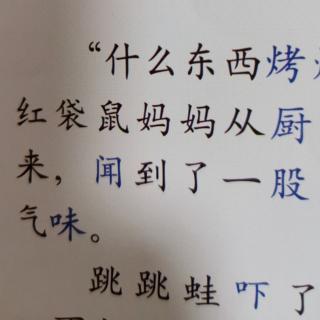 “什么东西烤
红袋鼠妈妈从厨
来，闻到了一股
气味。
跳跳蛙吓了